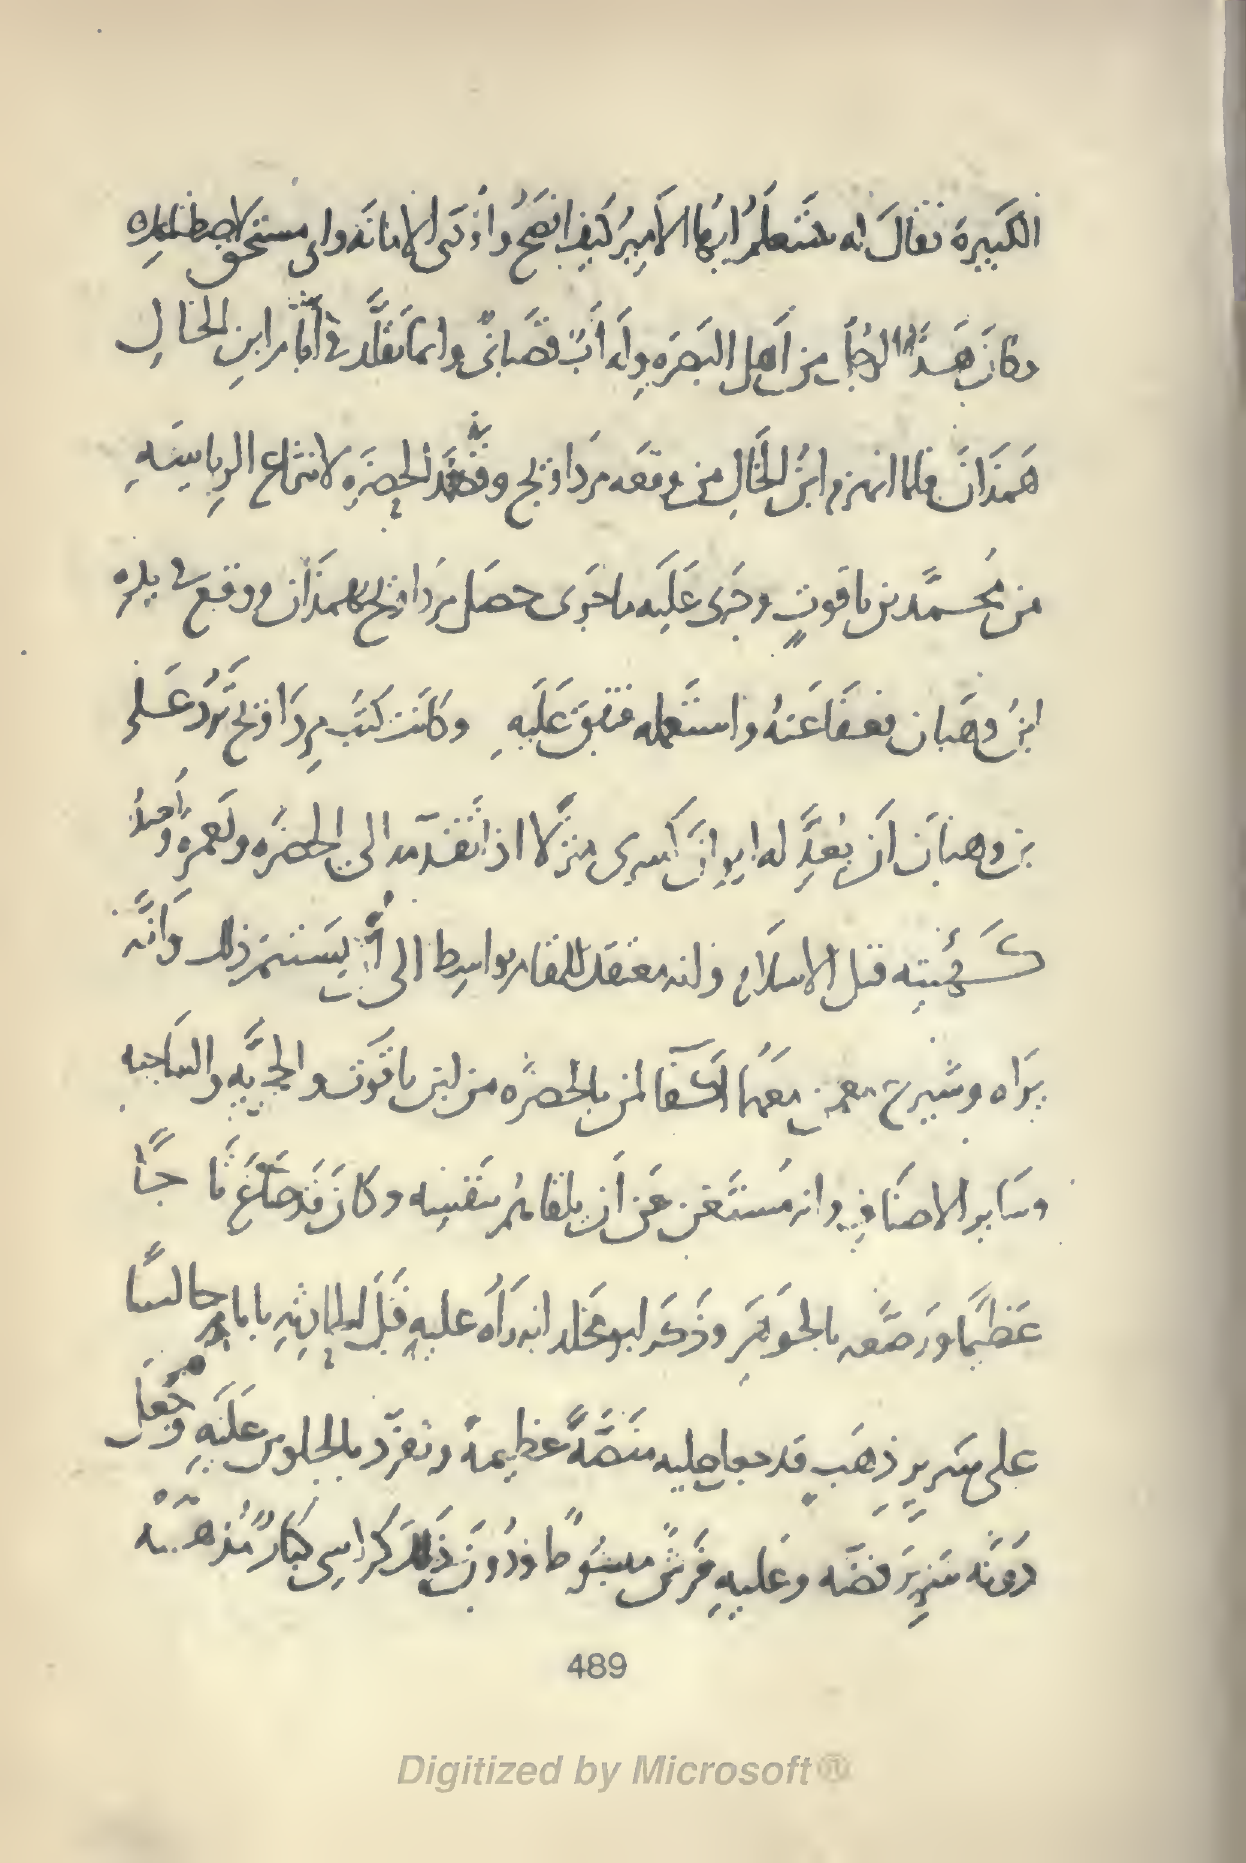 الكبيرة فقال له ستعلم ايها الامير كيف انصح واؤدى الامانه وانى مستحق لاصطناعك
وكان هذا الرجل من اهل البصره وله اب قصبانى وانما تقلد فى ايام ابن الخال
همذان فلما انهزم ابن الخال من وقعه مرداويج وقصد الحضره لانتزاع الرياسه
من محمد بن ياقوت وجرى عليه ما جرى حصل مرداويج بهمذان ووقع فى يده
ابن وهبان فعفا عنه واستعمله فنفق عليه وكانت كتب مرداويج ترد على
بن وهبان ان يعد له ايوان كسرى منزلا اذا تقدم الى الحضره ويعمره ويعيده
كهيئته قبل الاسلام وانه معتقد للمقام بواسط الى ان يستتم ذلك وانه
يراه وشيرج معمن معهما اكفا لمن بالحضره من ابن ياقوت والحجريه والساجيه
وساير الاصناف وانه مستغن عن ان يلقاهم بنفسه وكان قد صاغ تاجا
عظيما ورصعه بالجوهر وذكر ابو مخلد انه راه عليه قبل بايام جالسا
على سرير ذهب قد جعل عليه منصة عظيمة وتفرد بالجلوس عليه وجعل
دونه سرير فضه وعليه فرش مبسوط ودون ذلك كراسى كبار مذهبه
489
Digitized by Microsoft®